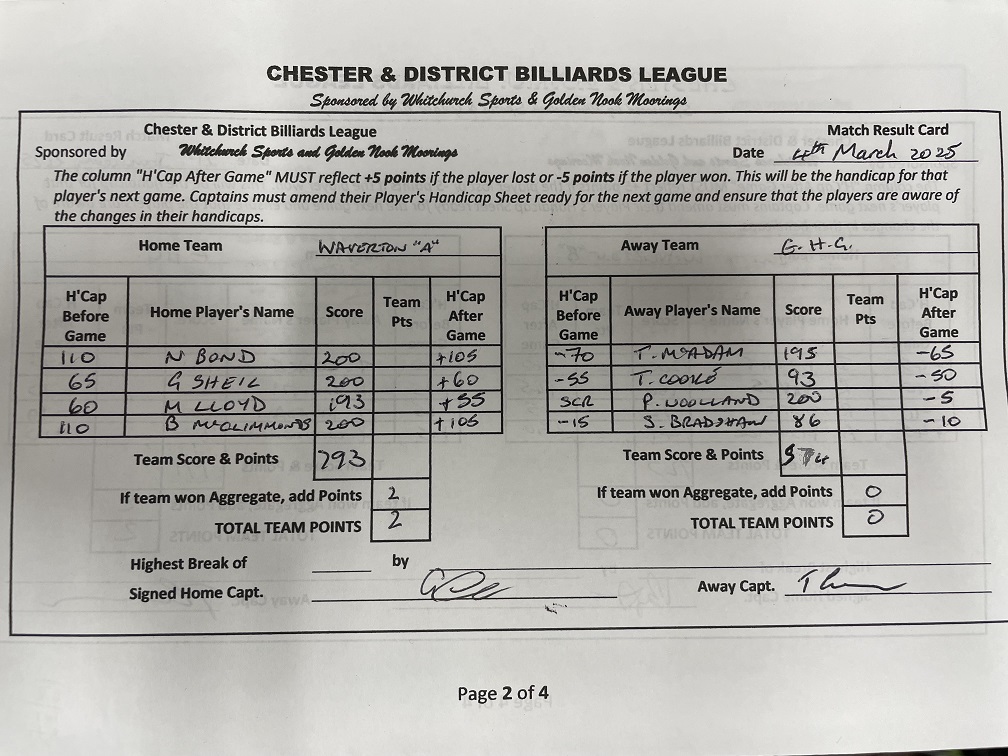 CHESTER & DISTRICT BILLIARDS LEAGUE
Sponsored by Whitchurch Sports & Golden Nook Moorings
Chester & District Billiards League
Match Result Card
Sponsored by Whitchurch Sports and Golden Nook Moorings
Date 4th March 2025
The column "H'Cap After Game" MUST reflect +5 points if the player lost or -5 points if the player won. This will be the handicap for that
player's next game. Captains must amend their Player's Handicap Sheet ready for the next game and ensure that the players are aware of
the changes in their handicaps.
Home Team WAVERTON "A"
H'Cap Before Game Home Player's Name Score Team Pts H'Cap After Game
110 N BOND 200 +105
65 G SHEIL 200 +60
60 M LLOYD 193 +55
110 B McCLIMMONDS 200 +105
Team Score & Points 793
If team won Aggregate, add Points 2
TOTAL TEAM POINTS 2
Away Team G.H.G.
H'Cap Before Game Away Player's Name Score Team Pts H'Cap After Game
-70 T. McADAM 195 -65
-55 T. COOKE 93 -50
SCR P. WOOLLAND 200 -5
-15 S. BRADSHAW 86 -10
Team Score & Points 574
If team won Aggregate, add Points 0
TOTAL TEAM POINTS 0
Highest Break of by
Signed Home Capt.
Away Capt.
Page 2 of 4